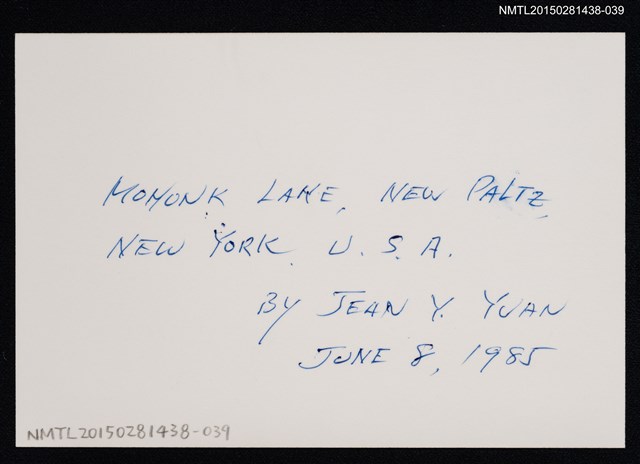 NMTL20150281438-039
MOHONK LAKE, NEW PALTZ,
NEW YORK, U.S.A.
BY JEAN Y. YUAN
JUNE 8, 1985
NMTL20150281438-039